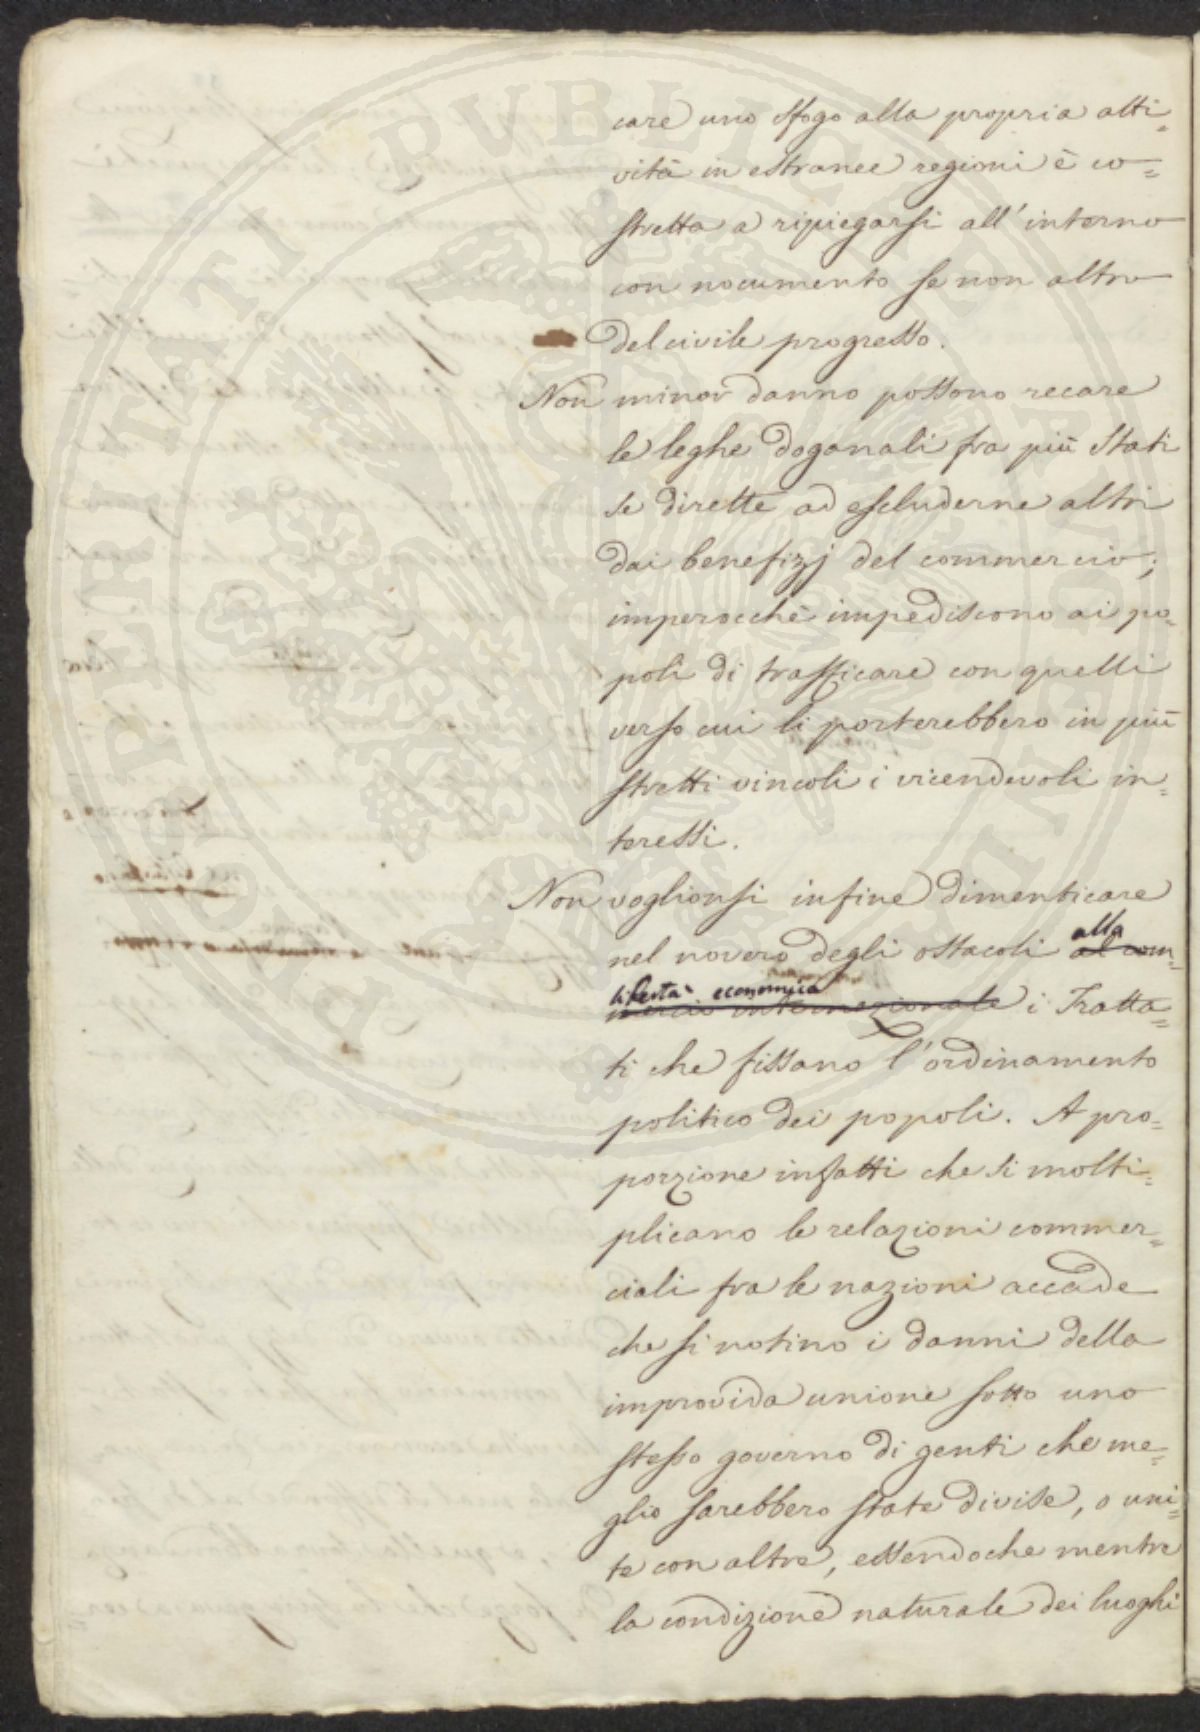 PROSPERITATI PUBLICAE AUGENDAE
care uno sfogo alla propria atti=
vità in estranee regioni è co=
stretta a ripiegarsi all'interno
con nocumento se non altro
del civile progresso.
Non minor danno possono recare
le leghe doganali fra più Stati
se dirette ad escluderne altri
dai benefizj del commercio;
imperocchè impediscono ai po=
poli di trafficare con quelli
verso cui li porterebbero in più
stretti vincoli i vicendevoli in=
teressi.
Non voglionsi infine dimenticare
nel novero degli ostacoli al com= alla
mercio internazionale libertà economica i Tratta=
ti che fissano l'ordinamento
politico dei popoli. A pro=
porzione infatti che si molti=
plicano le relazioni commer=
ciali fra le nazioni accade
che si notino i danni della
improvida unione sotto uno
stesso governo di genti che me=
glio sarebbero state divise, o uni=
te con altre, essendoche mentre
la condizione naturale dei luoghi